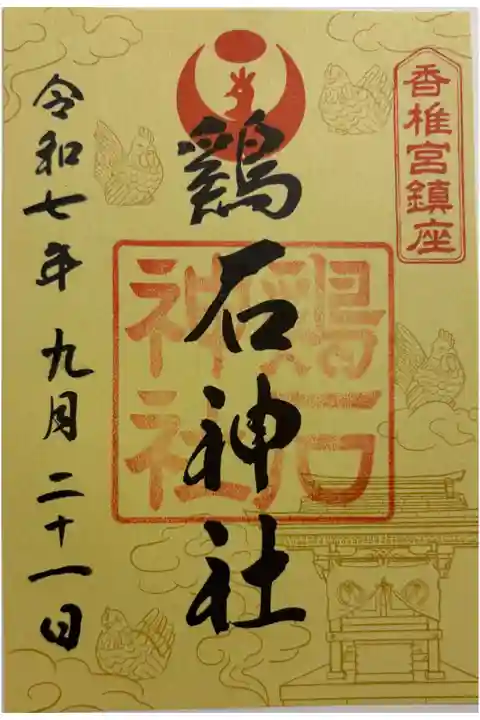 香椎宮鎮座
鶏石神社
鶏石
神社
令和七年 九月二十一日